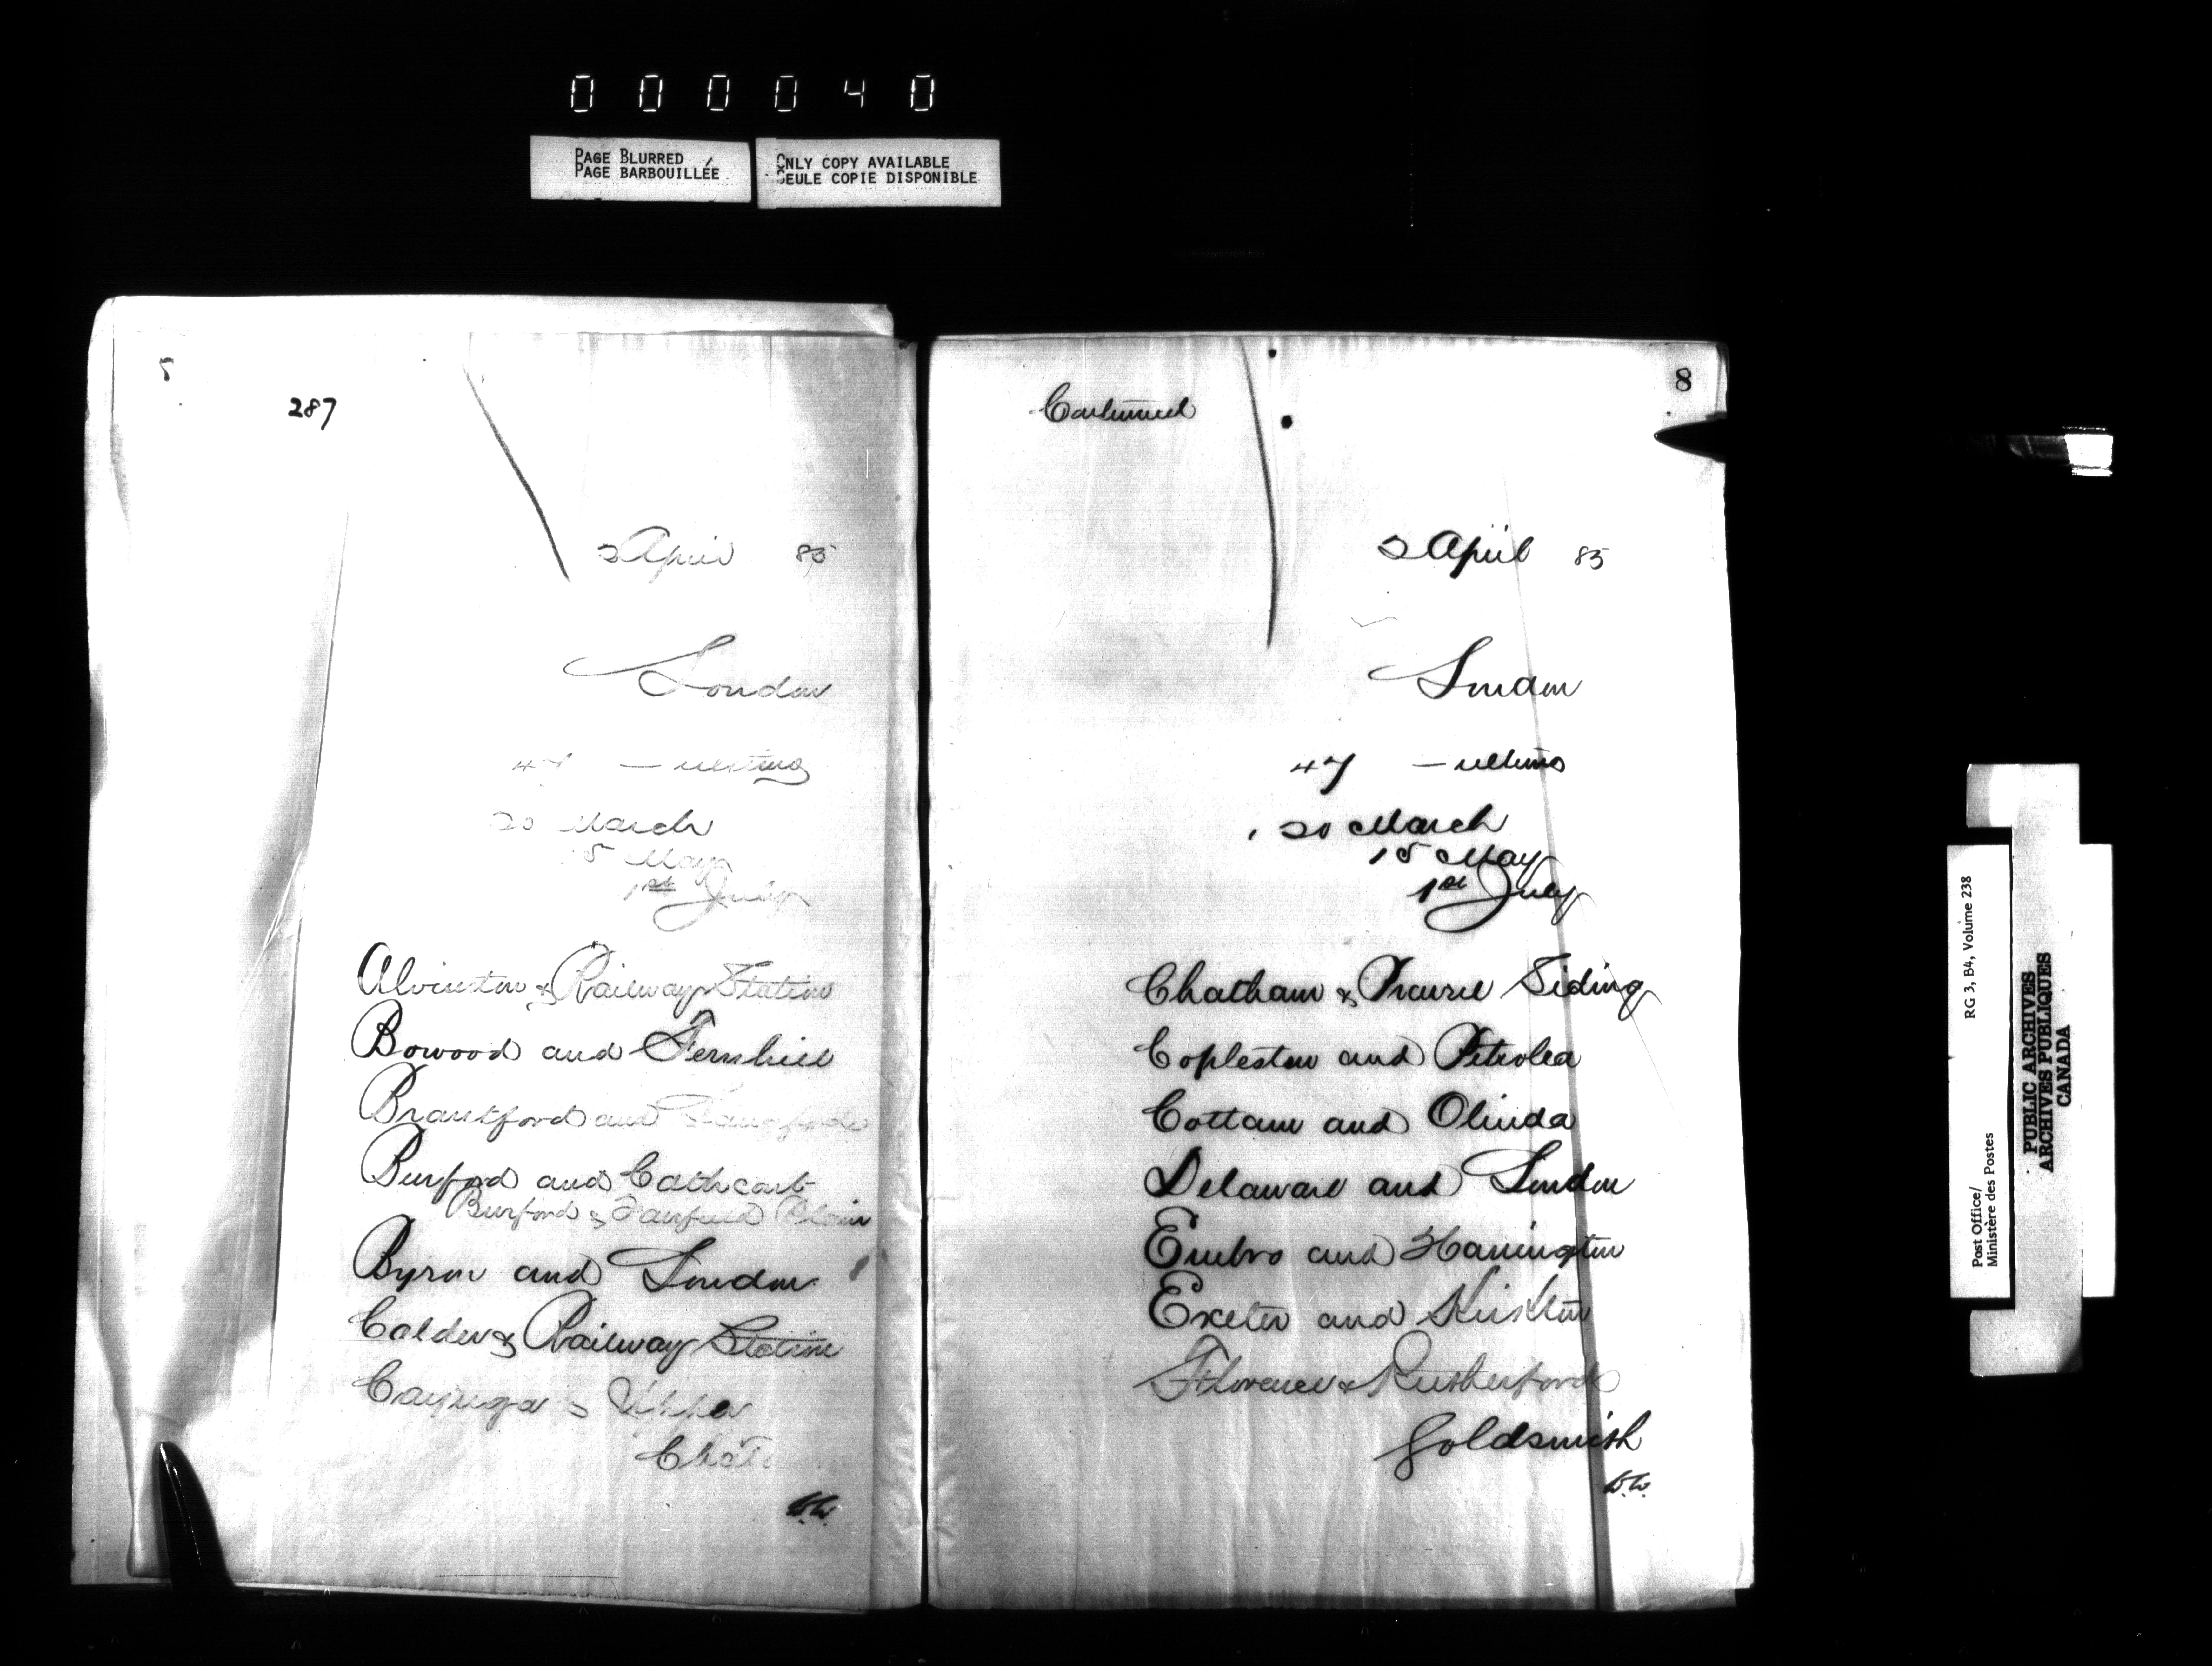 000040
PAGE BLURRED
PAGE BARBOUILLÉE
ONLY COPY AVAILABLE
SEULE COPIE DISPONIBLE
5
287
2 April 85
London
47 — ultimo
20 March
15 May
1st July
Alvinston & Railway Station
Bowood and Fernhill
Brantford and Langford
Burford and Cathcart
Burford & Fairfield Plain
Byron and London
Calder & Railway Station
Cayuga & Upper
W.W.
8
Continued
2 April 85
London
47 — ultimo
20 March
15 May
1st July
Chatham & Prairie Siding
Copleston and Petrolea
Cottam and Olinda
Delaware and London
Embro and Harrington
Exeter and Kirkton
Florence & Rutherford
Goldsmith
W.W.
Post Office/
Ministère des Postes
RG 3, B4, Volume 238
PUBLIC ARCHIVES
ARCHIVES PUBLIQUES
CANADA